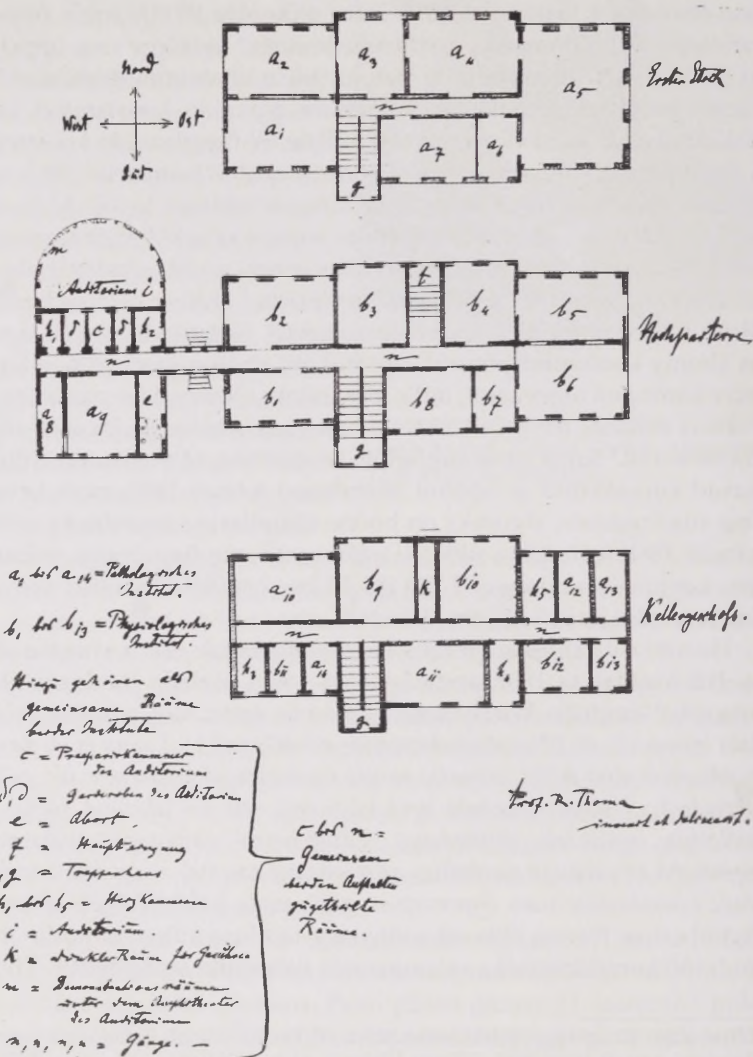 Nord
West Ost
Süd
a2 a3 a4 a5
n
a1 g a7 a6
Erster Stock
m
Auditorium i
h1 d c d h2
n
a8 a9 e
b2 b3 f b4 b5
n
b1 g b8 b7 b6
Hochparterre
a10 b9 k b10 h5 a12 a13
n n
h3 b11 a14 g a11 h4 b12 b13
Kellergeschoß.
a1 bis a14 = Pathologisches
Institut.
b1 bis b13 = Physiologisches
Institut
Hiezu gehören als
gemeinsame Räume
beider Institute
c = Praeparirkammer
des Auditorium
d,d = Garderoben des Auditorium
e = Abort.
f = Haupteingang
g = Treppenhaus
h1 bis h5 = Heizkammern
i = Auditorium.
k = dunkler Raum für
m = Demonstrationsräume
unter dem Amphitheater
des Auditorium
n, n, n, n = Gänge. —
c bis n =
Gemeinsam
beiden Anstalten
zugetheilte
Räume.
Prof. R. Thoma